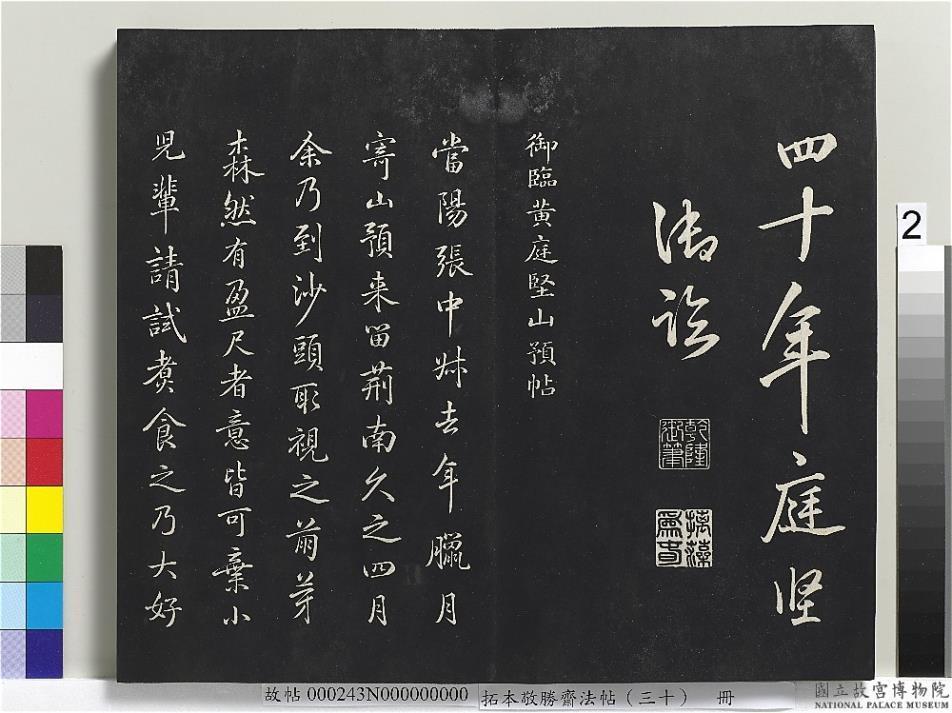 四十年庭坚
御臨
乾隆御筆
御臨黄庭堅山預帖
當陽張中叔去年臘月
寄山預来留荆南久之四月
余乃到沙頭取視之萌芽
森然有盈尺者意皆可棄小
児輩請試煮食之乃大好
2
故帖 000243N000000000 拓本敬勝齋法帖（三十） 冊
國立故宮博物院
NATIONAL PALACE MUSEUM